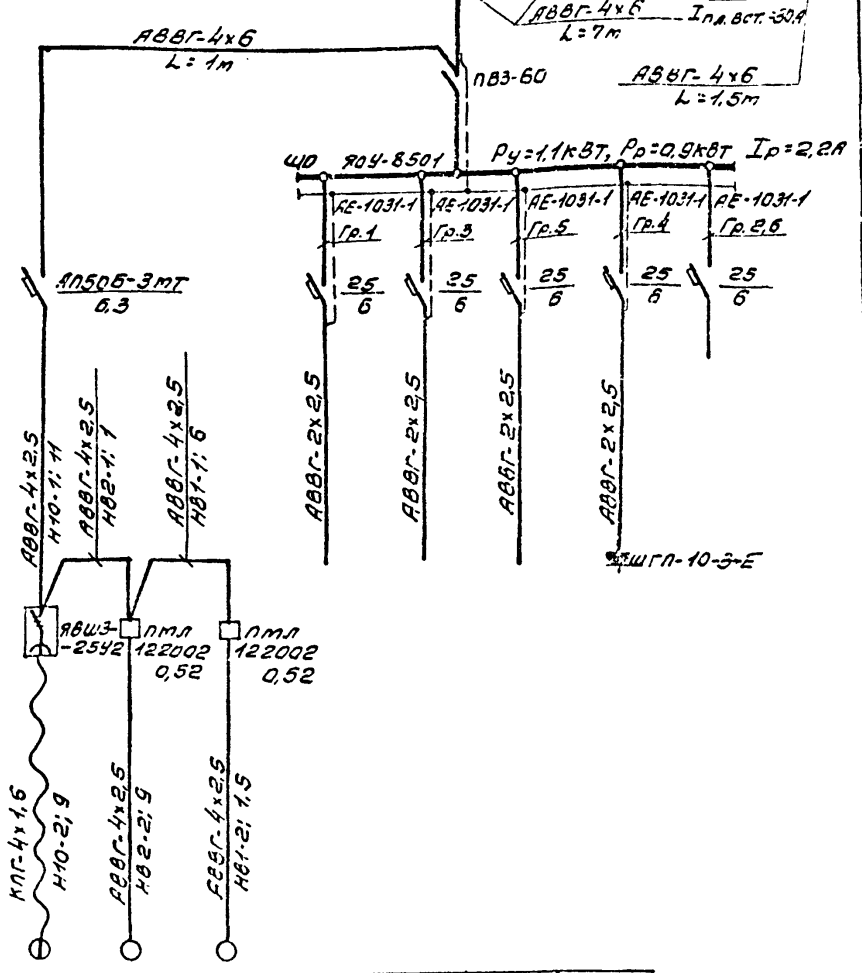 АВВГ-4х6
L=7м
Iпл.вст.=50А
АВВГ-4х6
L=1м
ПВЗ-60
АВВГ-4х6
L=1,5м
ЩО ЯОУ-8501 Ру=1,1кВт, Рр=0,9кВт Iр=2,2А
АЕ-1031-1 АЕ-1031-1 АЕ-1031-1 АЕ-1031-1 АЕ-1031-1
Гр.1 Гр.3 Гр.5 Гр.4 Гр.2,6
АП50Б-3МТ
6,3
25 25 25 25 25
6 6 6 6 6
АВВГ-4х2,5
Н10-1; 11
АВВГ-4х2,5
НВ2-1; 1
АВВГ-4х2,5
НВ1-1; 6
АВВГ-2х2,5
АВВГ-2х2,5
АВВГ-2х2,5
АВВГ-2х2,5
ШГП-10-3-Е
ЯВШЗ-
-25У2
ПМЛ
122002
0,52
ПМЛ
122002
0,52
КПГ-4х1,6
Н10-2; 9
АВВГ-4х2,5
НВ2-2; 9
АВВГ-4х2,5
НВ1-2; 1,5